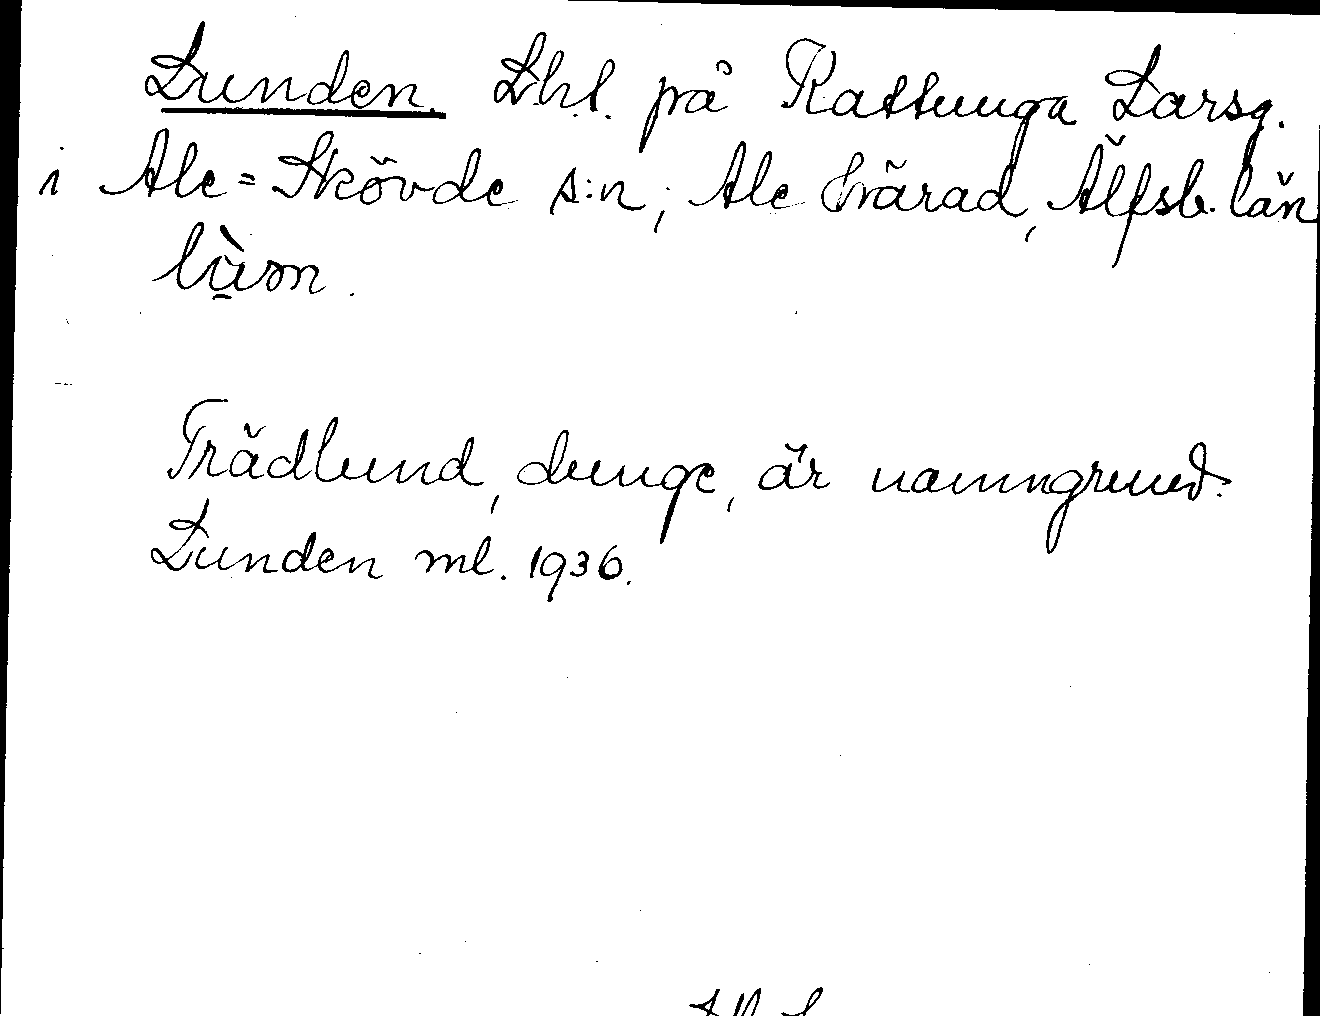 Lunden. Lht. på Rattunga Larsg.
i Ale=Skövde s:n, Ale härad, Älfsb. län
Trädlund, dunge, är namngrund.
Lunden ml. 1936.